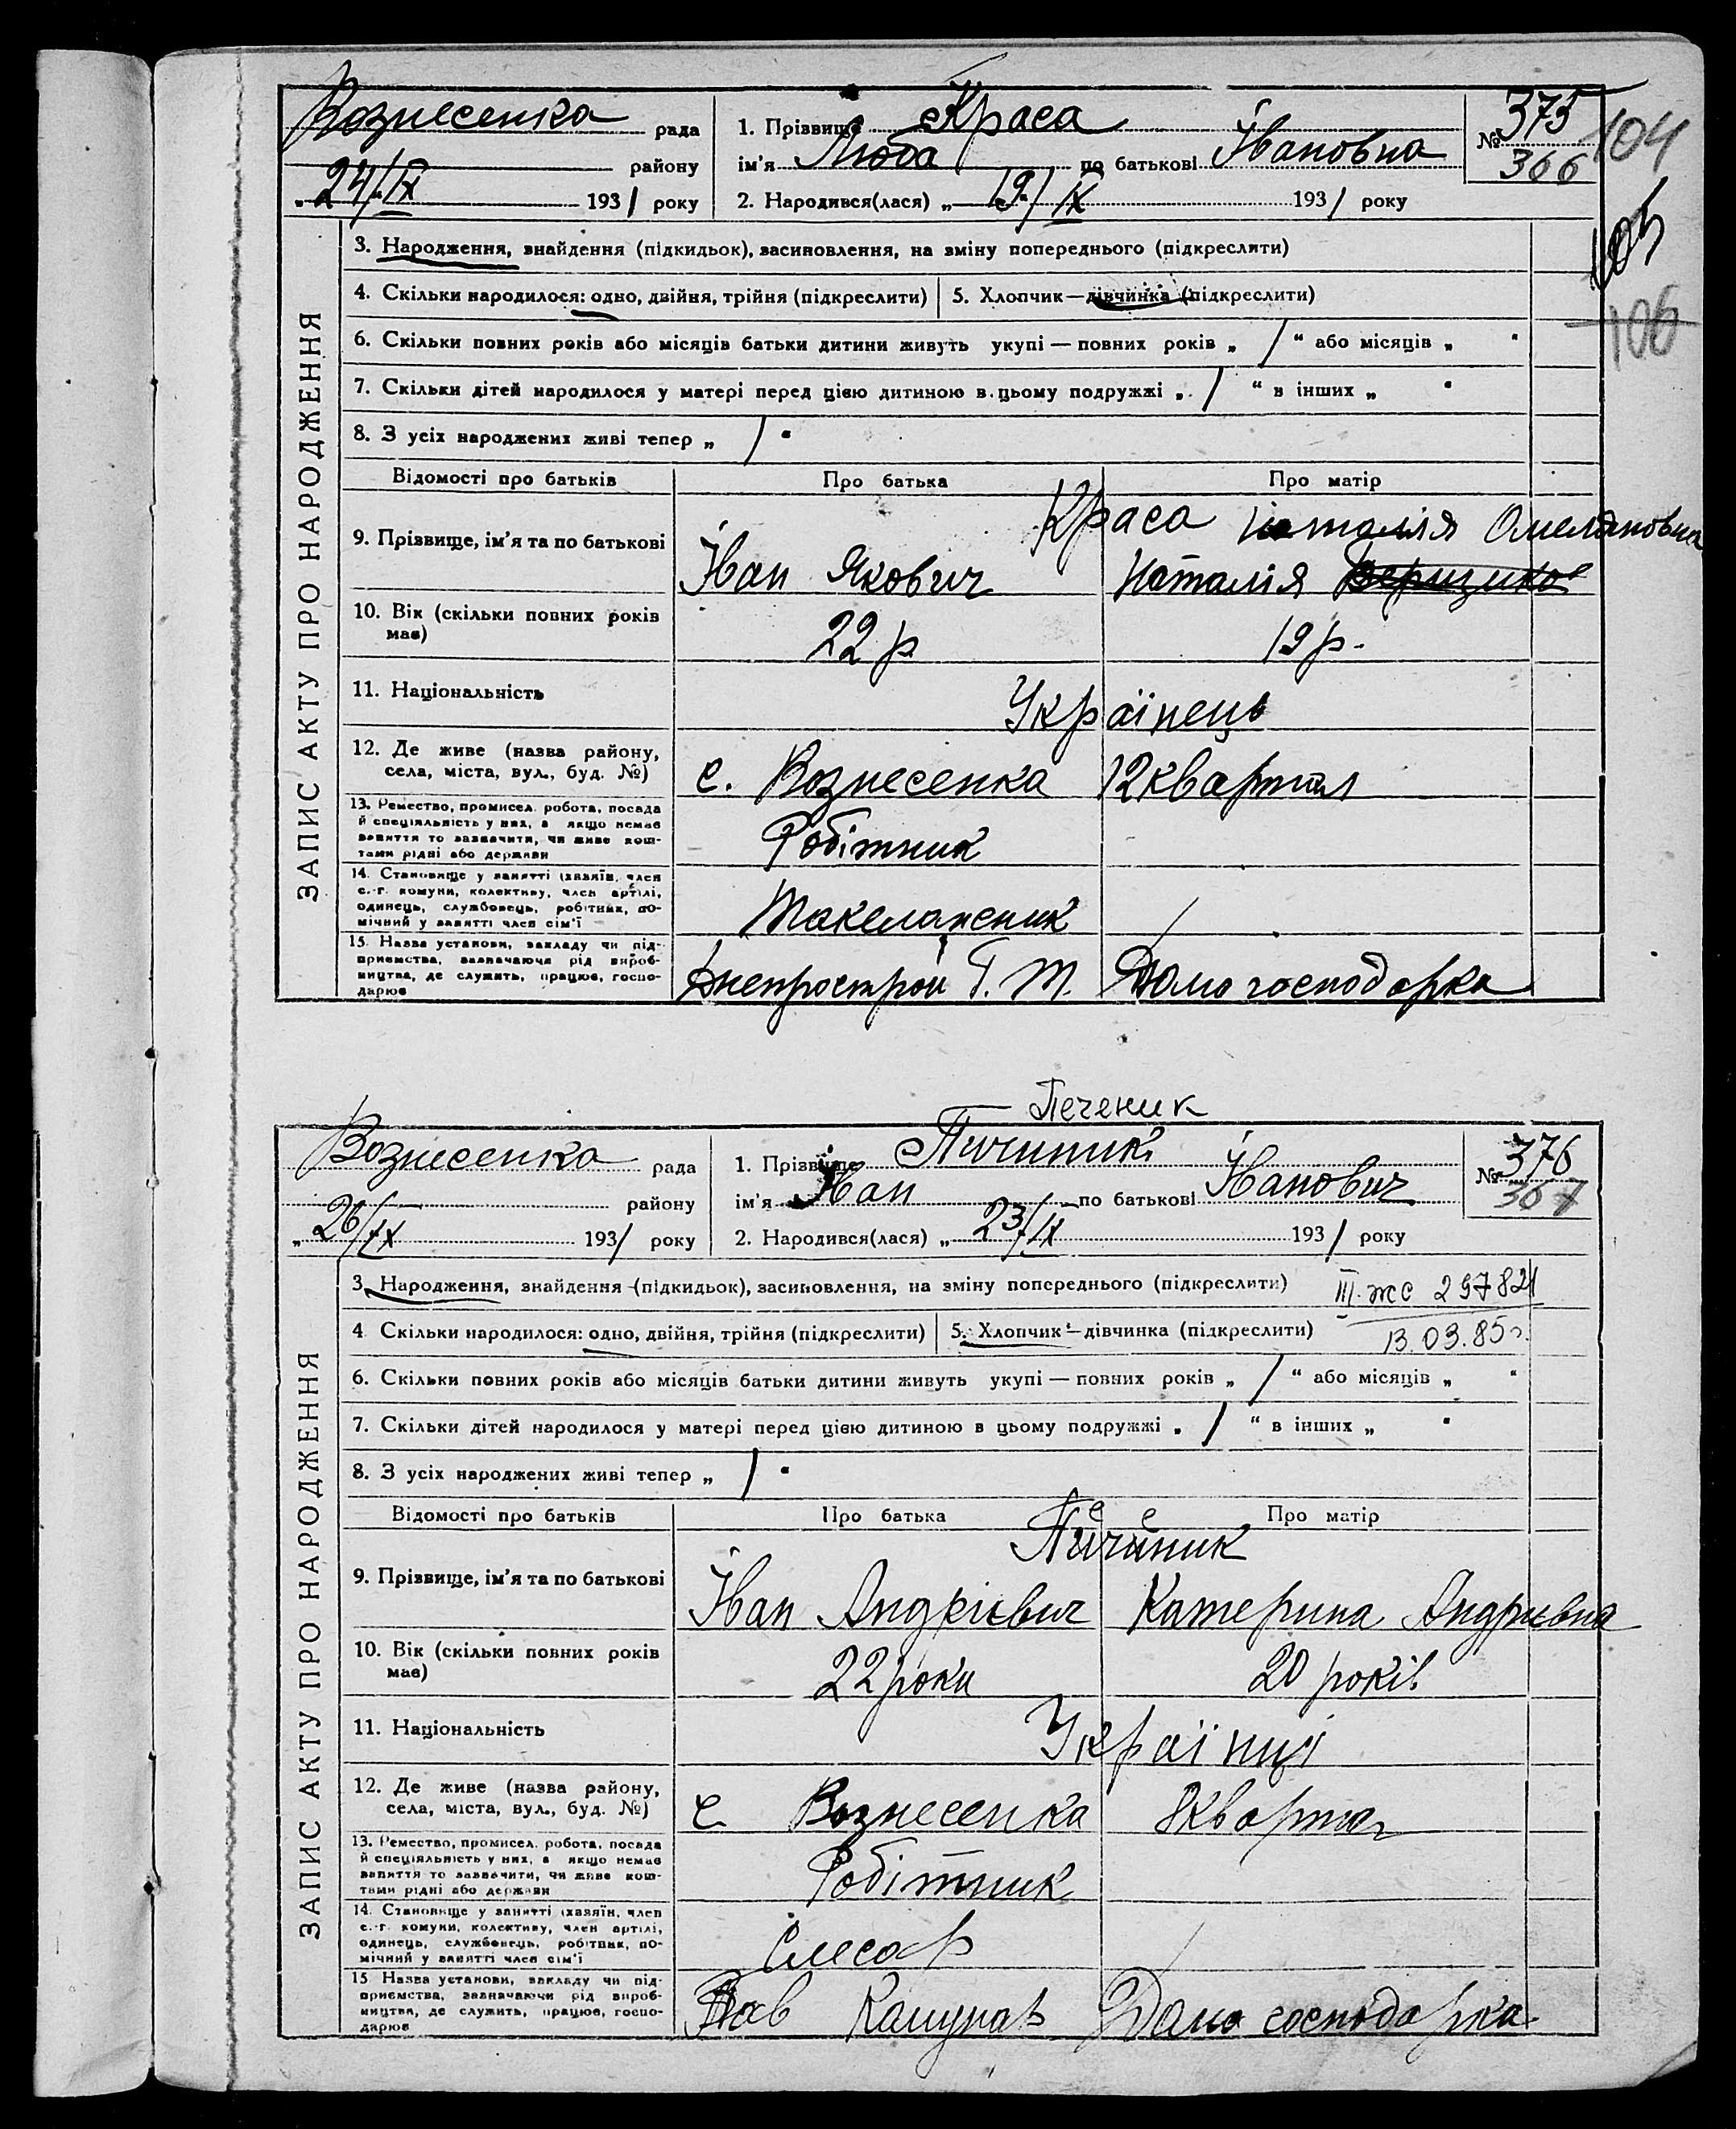 Вознесенка рада
району
„24/ІХ 1931 року
1. Прізвище Краса
ім'я Люба по батькові Івановна
2. Народився(лася) „19/ІХ 1931 року
№ 375
366
104
105
106
ЗАПИС АКТУ ПРО НАРОДЖЕННЯ
3. Народження, знайдення (підкидьок), засиновлення, на зміну попереднього (підкреслити)
4. Скільки народилося: одно, двійня, трійня (підкреслити) 5. Хлопчик—дівчинка (підкреслити)
6. Скільки повних років або місяців батьки дитини живуть укупі — повних років „ / “ або місяців „ “
7. Скільки дітей народилося у матері перед цією дитиною в цьому подружжі „ / “ в інших „ “
8. З усіх народжених живі тепер „ / “
Відомості про батьків Про батька Про матір
9. Прізвище, ім'я та по батькові
Краса Наталія Омеляновна
Іван Якович Наталія
10. Вік (скільки повних років має) 22 р 19 р.
11. Національність Українець
12. Де живе (назва району, села, міста, вул., буд. №) с. Вознесенка 12 квартал
13. Ремество, промисел, робота, посада й спеціяльність у них, а якщо немає заняття то зазначити, чи живе коштами рідні або держави Робітник
14. Становище у занятті (хазяїн, член с.-г. комуни, колективу, член артілі, одинець, службовець, робітник, помічний у занятті член сім'ї Такелажник /
15. Назва установи, закладу чи підприємства, зазначаючи рід виробництва, де служить, працює, господарює Днепрострой Г. Т. Домогосподарка
Печеник
Вознесенка рада
району
„26/ІХ 1931 року
1. Прізвище Пичиник
ім'я Іван по батькові Іванович
2. Народився(лася) „23/ІХ 1931 року
№ 376
367
ЗАПИС АКТУ ПРО НАРОДЖЕННЯ
3. Народження, знайдення (підкидьок), засиновлення, на зміну попереднього (підкреслити)
ІІІ. жс 297821
4. Скільки народилося: одно, двійня, трійня (підкреслити) 5. Хлопчик—дівчинка (підкреслити)
13.03.85г.
6. Скільки повних років або місяців батьки дитини живуть укупі — повних років „ / “ або місяців „ “
7. Скільки дітей народилося у матері перед цією дитиною в цьому подружжі „ / “ в інших „ “
8. З усіх народжених живі тепер „ / “
Відомості про батьків Про батька Про матір
е е
Пичиник
9. Прізвище, ім'я та по батькові Іван Андрієвич Катерина Андриєвна
10. Вік (скільки повних років має) 22 роки 20 років
11. Національність Українці
12. Де живе (назва району, села, міста, вул., буд. №) с. Вознесенка 8 квартал
13. Ремество, промисел, робота, посада й спеціяльність у них, а якщо немає заняття то зазначити, чи живе коштами рідні або держави Робітник
14. Становище у занятті (хазяїн, член с.-г. комуни, колективу, член артілі, одинець, службовець, робітник, помічний у занятті член сім'ї Слесар /
15. Назва установи, закладу чи підприємства, зазначаючи рід виробництва, де служить, працює, господарює Зав Комунар Домогосподарка